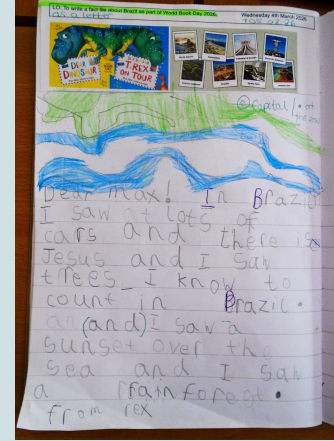 LO: To write a fact file about Brazil as part of World Book Day 2026.
Wednesday 4th March 2026
as a letter
DEAR DINOSAUR
T.REX ON TOUR
© Capital / . at the end
Dear max! In Brazil
I saw at lots of
cars and there is a
Jesus and I saw
trees. I know to
count in Brazil.
an (and) I saw a
sunset over the
sea and I sah
a rainforest.
from rex